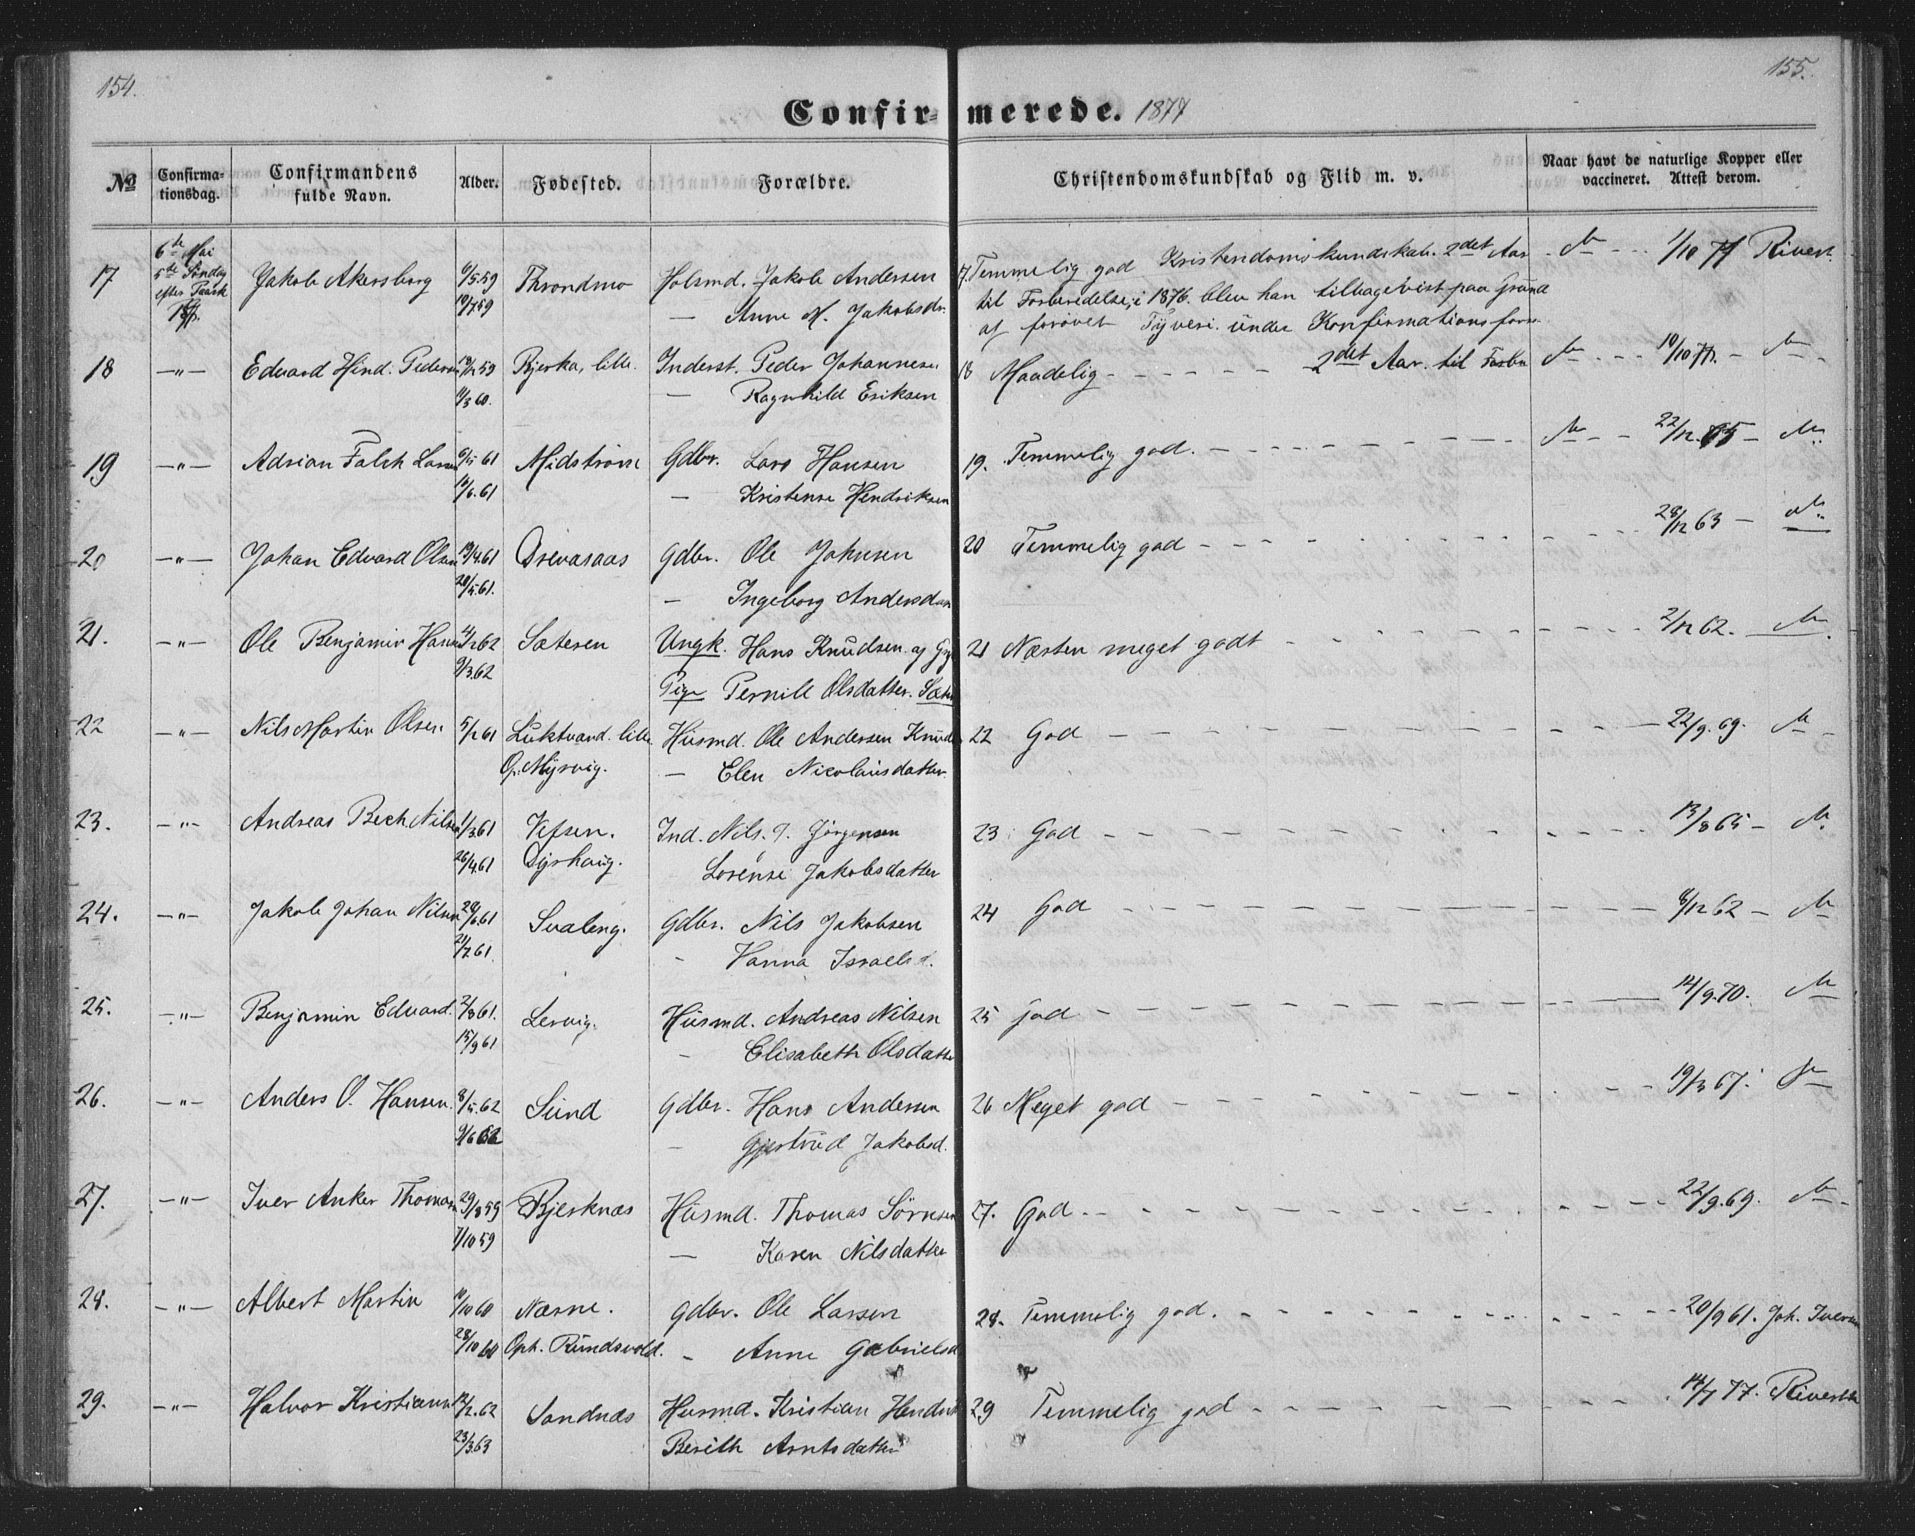 154.
155.
Confirmerede. 1877
No
Confirma-
tionsdag.
Confirmandens
fulde Navn.
Alder.
Fødested.
Forældre.
Christendomskundskab og Flid m. v.
Naar havt de naturlige Kopper eller
vaccineret. Attest derom.
17 6te Mai Jakob Akersborg 6/5 59 Throndmo Holsmd. Jakob Andersen 17. Temmelig god Kristendomskundskab. 2det Aar 1/10 77 Rivert.
5te Søndag
efter Paask
10/7 59 — Anne M. Jakobsdr. til Forberedelse; i 1876 blev han tilbagevist paa Grund
af forøvet Tyveri under Konfirmationsforb
18 —"— Edvard Hind. Pedersen Bjerka, lille. Inderst. Peder Johannesen 18 Maadelig - - - 2det Aar. til Forbr 10/10 77. —
11/3 60. — Ragnhild Eriksen
19 —"— Adrian Falch Larsen 6/5 61 Midstrøm Gdbr. Lars Hansen 19. Temmelig god. - - - 22/12 65 —
16/6 61 — Kristense Hendriksen
20 —"— Johan Edvard Olsen 19/4 61 Drevasaas Gdbr. Ole Johnsen 20 Temmelig god - - - 28/12 63 —
20/5 61. — Ingeborg Andersdatter
21. —"— Ole Benjamin Hansen Sæteren Ungk. Hans Knudsen og 21 Næsten meget godt - - - 2/12 62.
9/3 62 Pige Pernill Olsdatter. Sæter
22 —"— Nils Martin Olsen 5/2 61 Luktvand. lille Husmd. Ole Andersen Knud 22 God - - - 22/9. 69.
O. Myrvig. — Elen Nicolaisdatter
23. —"— Andreas Bech Nilsen 1/3 61 Vefsen. Ind. Nils. J. Jørgensen 23 God - - - 13/8 65 —
26/4 61 Dyrhaug. Lorense Jakobsdatter
24. —"— Jakob Johan Nilsen 28/6 61 Svaleng. Gdbr. Nils Jakobsen 24 God - - - 8/12 62 —
21/7 61. - Hanna Israelsd.
25. —"— Benjamin Edvard. 2/8 61. Lervig. Husmd. Andreas Nilsen 25 god - - - 14/9. 70.
15/9 61 - Elisabeth Olsdatter
26. —"— Anders O. Hansen. 8/5. 62 Sund Gdbr. Hans Andersen 26 Meget god - - - 19/3 67.
9/6 62 — Gjertrud Jakobsd.
27. —"— Iver Anker Thomasen 29/8 59 Bjerknæs Husmd. Thomas Sørensen 27. God - - - 22/9. 69.
7/10 59 — Karen Nilsdatter
28. —"— Albert Martin Næsne. Gdbr. Ole Larsen 28. Temmelig god. - - - 20/9 61. Joh. Iversen
28/10 60 Oph. Rundsvold. - Anne Gabrielsd
29. —"— Halvor Kristiansen 12/12. 62 Sandnæs Husmd. Kristian Hendrik 29 Temmelig god - - - 14/7 77. Rivertz
23/3 63 Berith Arntsdatter